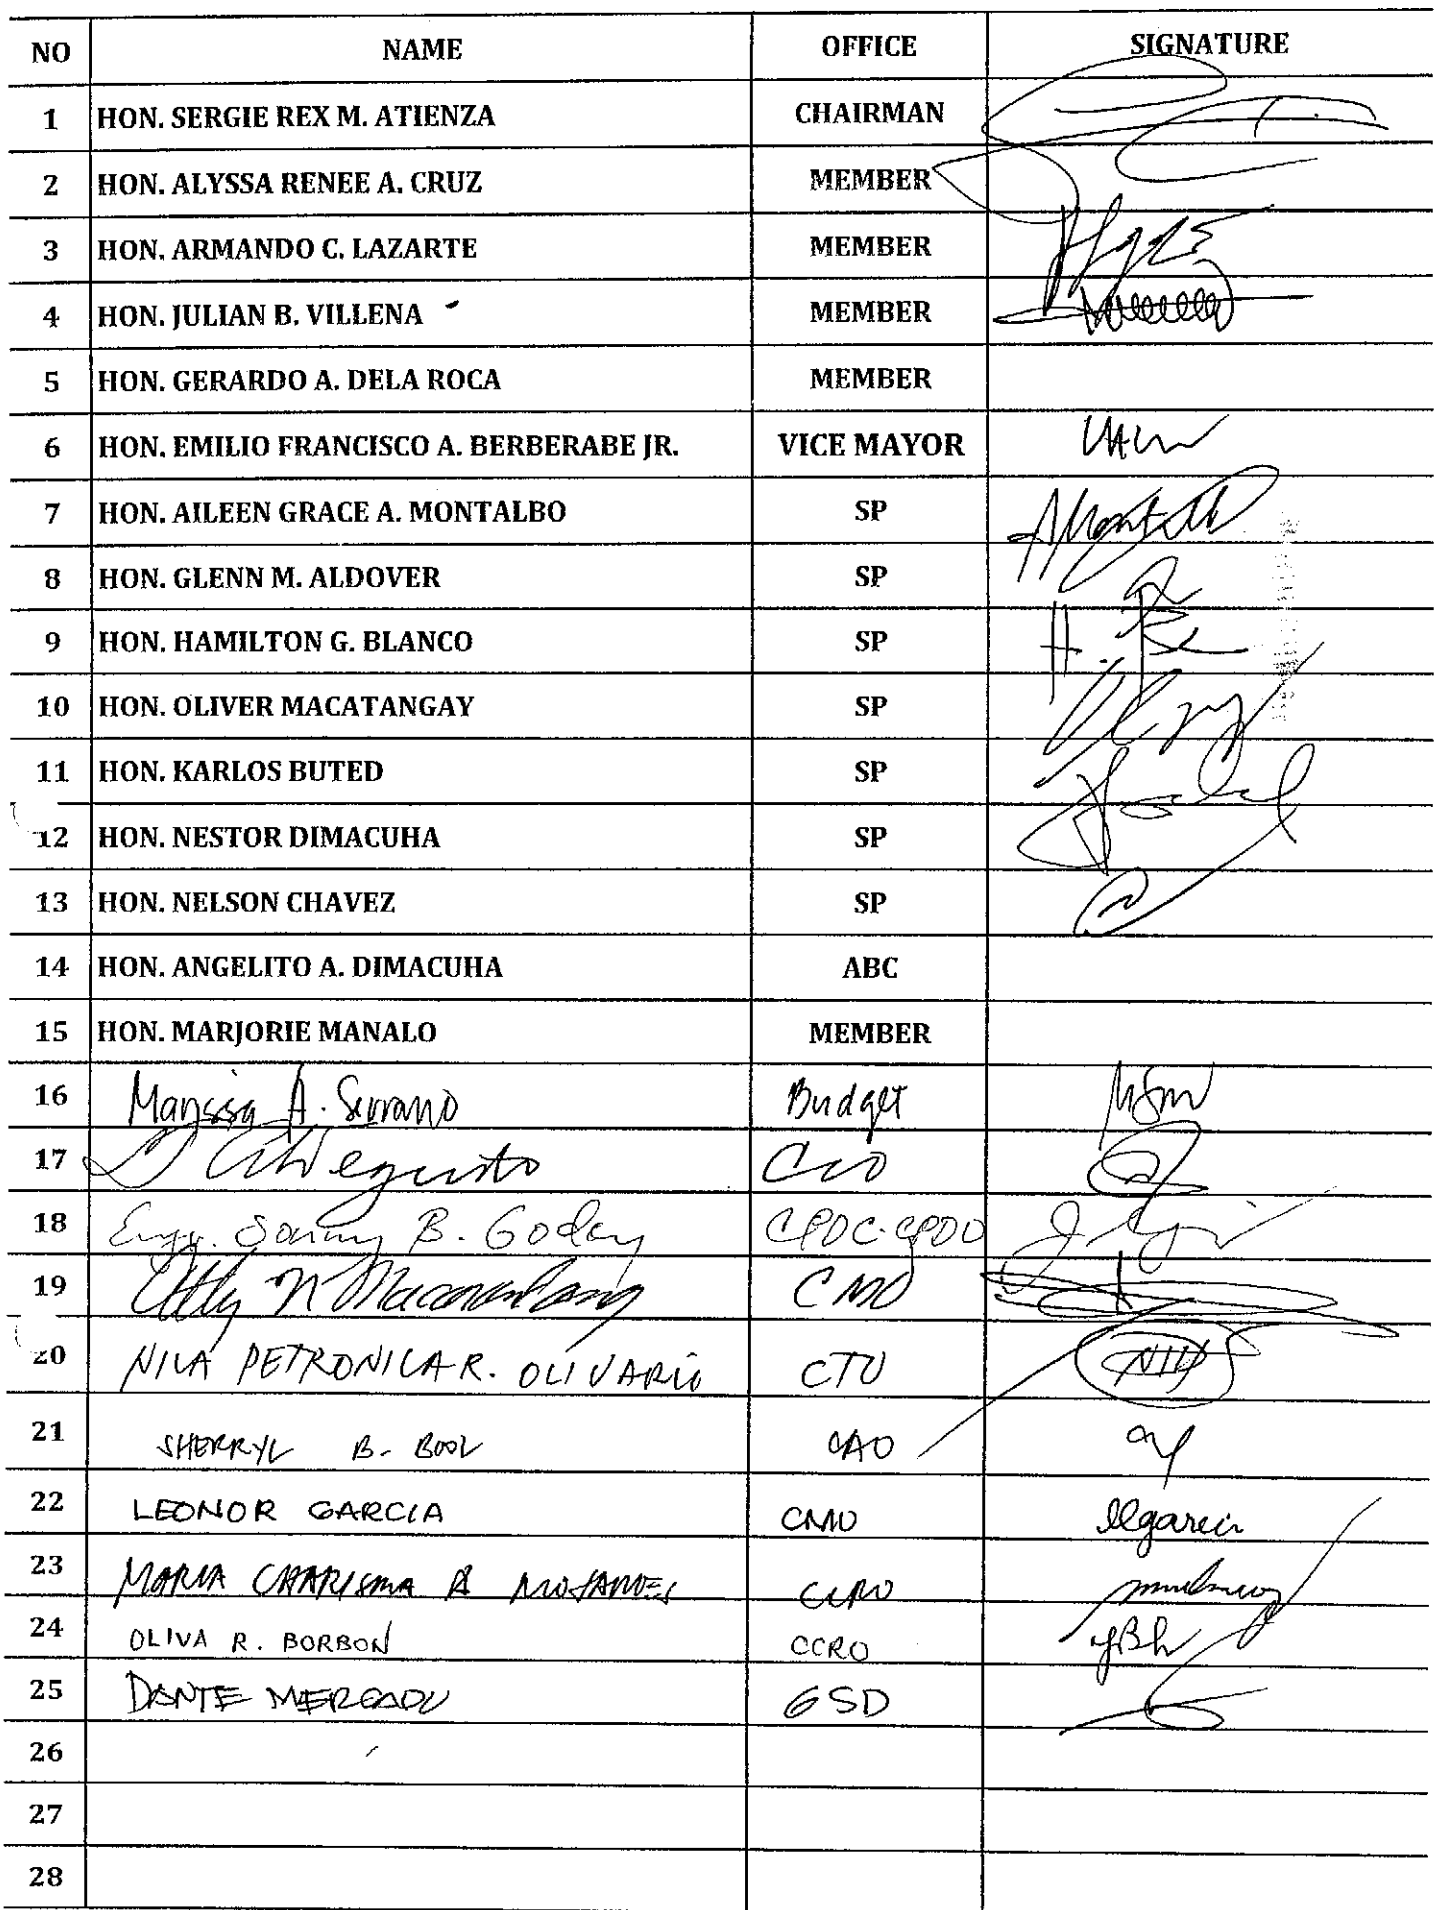 NO NAME OFFICE SIGNATURE
1 HON. SERGIE REX M. ATIENZA CHAIRMAN
2 HON. ALYSSA RENEE A. CRUZ MEMBER
3 HON. ARMANDO C. LAZARTE MEMBER
4 HON. JULIAN B. VILLENA MEMBER
5 HON. GERARDO A. DELA ROCA MEMBER
6 HON. EMILIO FRANCISCO A. BERBERABE JR. VICE MAYOR
7 HON. AILEEN GRACE A. MONTALBO SP
8 HON. GLENN M. ALDOVER SP
9 HON. HAMILTON G. BLANCO SP
10 HON. OLIVER MACATANGAY SP
11 HON. KARLOS BUTED SP
12 HON. NESTOR DIMACUHA SP
13 HON. NELSON CHAVEZ SP
14 HON. ANGELITO A. DIMACUHA ABC
15 HON. MARJORIE MANALO MEMBER
16 A. Serrano Budget
17
18 Engr. B. Godoy CPDC-CPDO
19 CMO
20 NILA PETRONILA R. CTO
21 SHERRYL B. BOOL CAO
22 LEONOR GARCIA CMO llgarcia
23 MARIA CHARISMA
24 OLIVA R. BORBON CCRO
25 DANTE MERCADO GSD
26
27
28